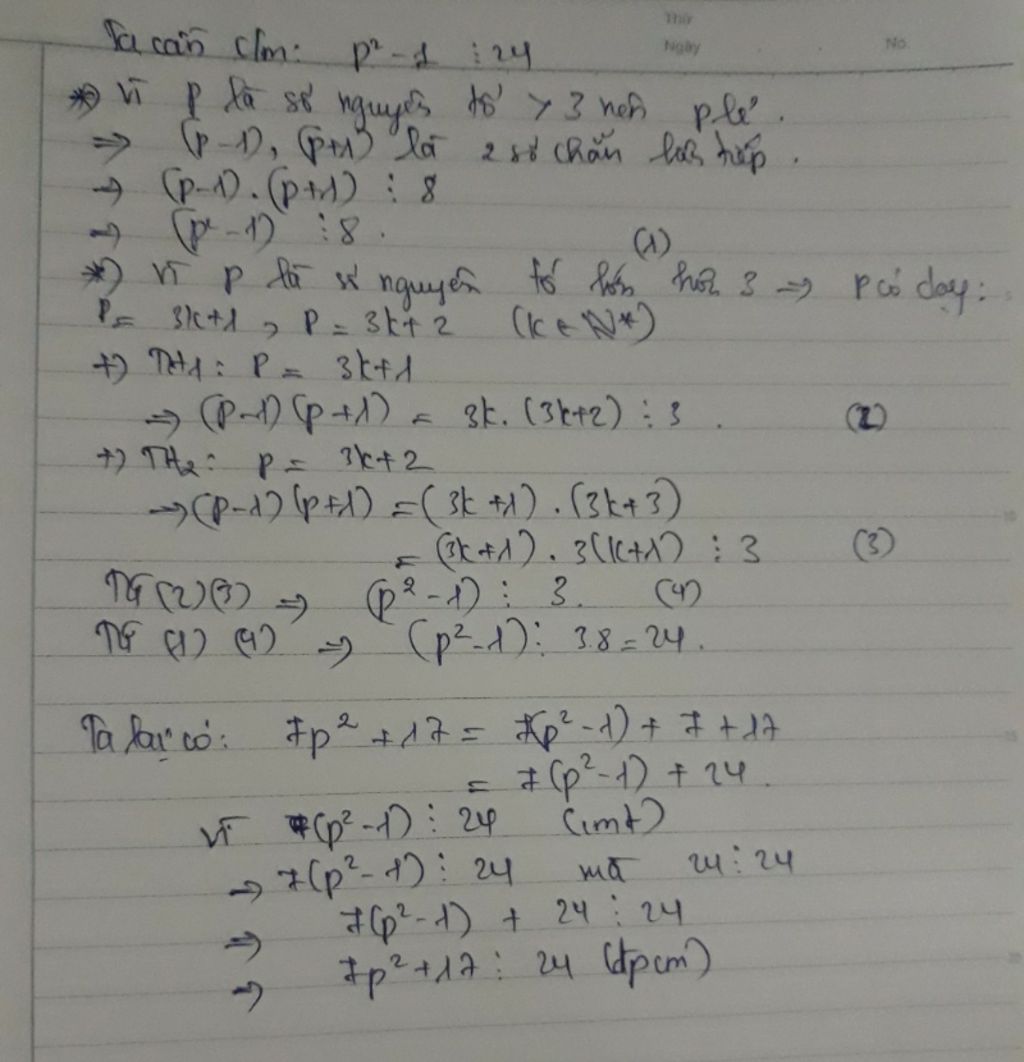 Thứ
Ngày No.
Ta cần c/m: p² - 1 ⋮ 24
*) Vì p là số nguyên tố > 3 nên p lẻ.
⇒ (p-1), (p+1) là 2 số chẵn liên tiếp.
→ (p-1).(p+1) ⋮ 8
⇒ (p² - 1) ⋮ 8. (1)
*) Vì p là số nguyên tố lớn hơn 3 ⇒ p có dạng:
P = 3k+1, P = 3k+2 (k ∈ N*)
+) TH1: P = 3k+1
⇒ (p-1)(p+1) = 3k.(3k+2) ⋮ 3. (2)
+) TH2: p = 3k+2
→ (p-1)(p+1) = (3k+1).(3k+3)
= (3k+1).3(k+1) ⋮ 3 (3)
Từ (2)(3) ⇒ (p² - 1) ⋮ 3. (4)
Từ (1) (4) ⇒ (p² - 1) ⋮ 3.8 = 24.
Ta lại có: 7p² + 17 = 7(p² - 1) + 7 + 17
= 7(p² - 1) + 24.
Vì (p² - 1) ⋮ 24 (cmt)
⇒ 7(p² - 1) ⋮ 24 mà 24 ⋮ 24
⇒ 7(p² - 1) + 24 ⋮ 24
⇒ 7p² + 17 ⋮ 24 (đpcm)